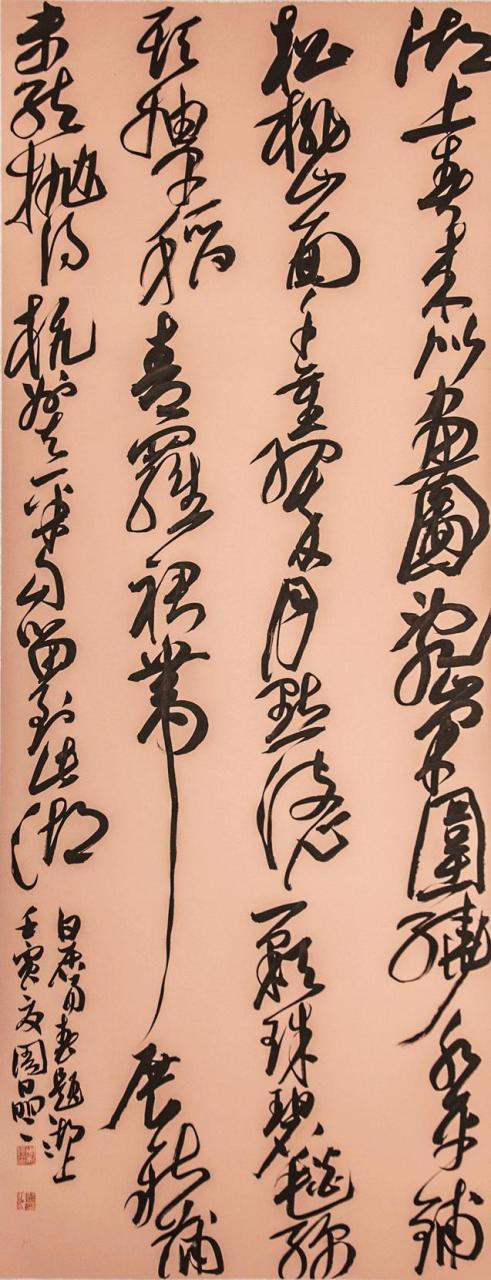 湖上春来似畫圖亂峯圍繞水平鋪
松排山面千重翠月點波心一顆珠碧毯线
頭抽早稻青羅裙帶展新蒲
未能抛得杭州去一半勾留是此湖
白居易春題湖上
壬寅夏周